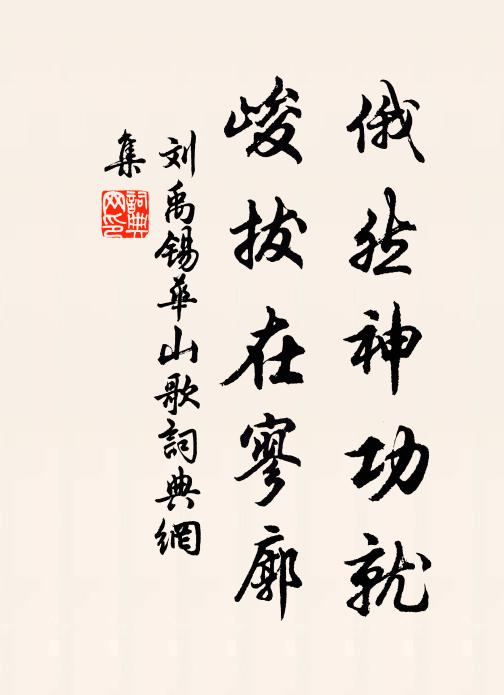 俄然神功就
峻拔在寥廓
刘禹锡华山歌詞典網
集
詞典网印